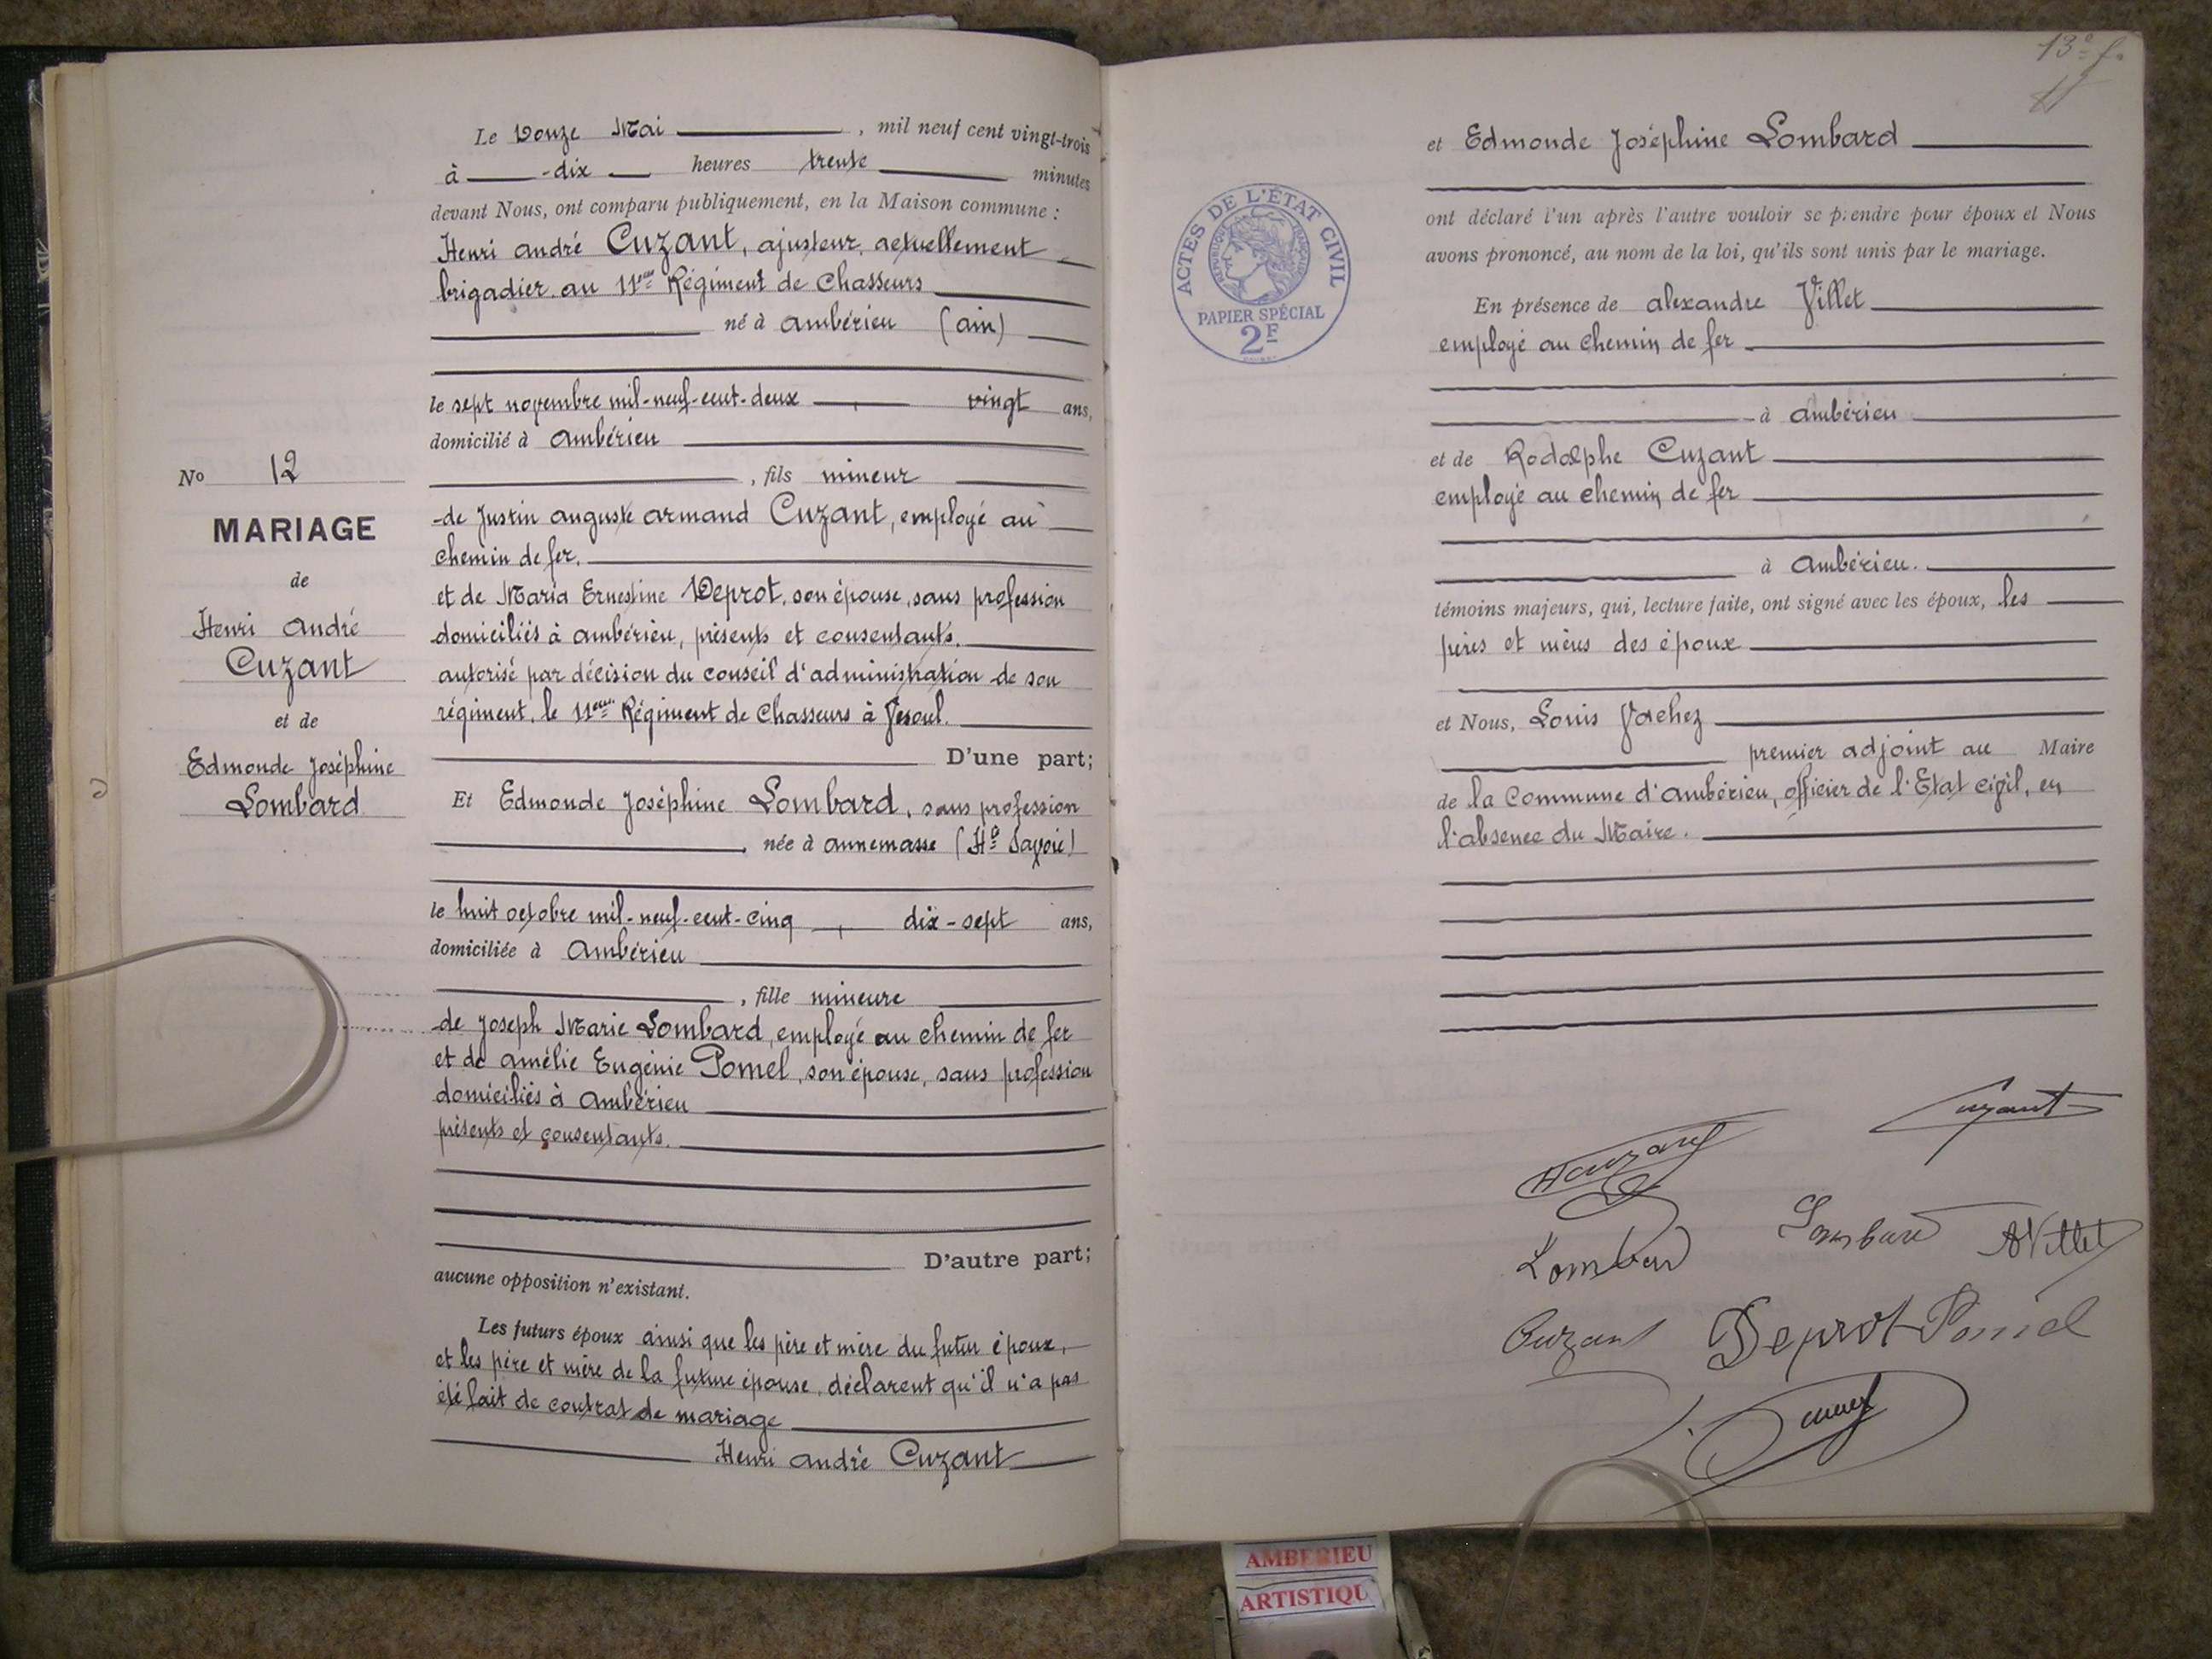 Le Douze Mai, mil neuf cent vingt-trois
à -dix heures trente minutes
devant Nous, ont comparu publiquement, en la Maison commune :
Henri André Cuzant, ajusteur, actuellement
brigadier au 11eme Régiment de Chasseurs
né à Ambérieu (Ain)
le sept novembre mil-neuf-cent-deux, vingt ans,
domicilié à Ambérieu
, fils mineur
de Justin Auguste Armand Cuzant, employé au
chemin de fer.
et de Maria Ernestine Deprot, son épouse, sans profession
domiciliés à Ambérieu, présents et consentants.
autorisé par décision du conseil d'administration de son
régiment, le 11eme Régiment de Chasseurs à Vesoul.
D'une part;
No 12
MARIAGE
de
Henri André
Cuzant
et de
Edmonde Joséphine
Lombard
Et Edmonde Joséphine Lombard, sans profession
, née à Annemasse (Hte Savoie)
le huit octobre mil-neuf-cent-cinq, dix-sept ans,
domiciliée à Ambérieu
, fille mineure
de Joseph Marie Lombard, employé au chemin de fer
et de Amélie Eugénie Pomel, son épouse, sans profession
domiciliés à Ambérieu
présents et consentants.
D'autre part;
aucune opposition n'existant.
Les futurs époux ainsi que les père et mère du futur époux,
et les père et mère de la future épouse, déclarent qu'il n'a pas
été fait de contrat de mariage
Henri André Cuzant
13e f.
et Edmonde Joséphine Lombard
ont déclaré l'un après l'autre vouloir se prendre pour époux et Nous
avons prononcé, au nom de la loi, qu'ils sont unis par le mariage.
ACTES DE L'ÉTAT CIVIL
RÉPUBLIQUE FRANÇAISE
PAPIER SPÉCIAL
2F
En présence de Alexandre Villet
employé au chemin de fer
à Ambérieu
et de Rodolphe Cuzant
employé au chemin de fer
à Ambérieu.
témoins majeurs, qui, lecture faite, ont signé avec les époux, les
pères et mères des époux
et Nous, Louis Vachez
premier adjoint au Maire
de la Commune d'Ambérieu, officier de l'Etat civil, en
l'absence du Maire.
Cuzant
HCuzant
Lombard
Lombard AVillet
Cuzant Deprot Pomel
AMBERIEU
ARTISTIQU